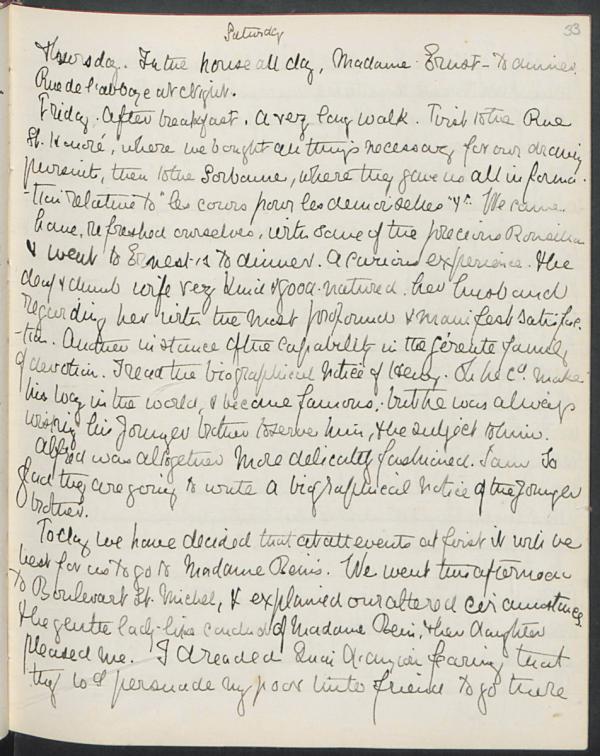 Saturday
33
Thursday. In the house all day, Madame Ernst - to dinner
Rue de l'abbaye at night.
Friday. After breakfast. A very long walk. First to the Rue
St. Honoré, where we bought all things necessary for our drawing
pursuits, then to the Sorbonne, where they gave us all informa-
-tion relative to "les cours pour les demoiselles" &c. We came
home, refreshed ourselves, with some of the precious
& went to Ernest-s to dinner. A curious experience. The
deaf & dumb wife very kind & good-natured. her husband
regarding her with the most profound & manifest satisfac-
-tion. Another instance of the capability in the family
of devotion. I read the biographical notice of Henry. Oh he cd. make
his way in the world, & become famous, but he was always
wishing his younger brother to serve him, & be subject to him.
Alfred was altogether more delicately fashioned. I am so
glad they are going to write a biographical notice of the younger
brother.
Today we have decided that at all events at first it will be
best for us to go to Madame . We went this afternoon
to Boulevart St. Michel, & explained our altered circumstances.
The gentle lady-like conduct of Madame , & her daughter
pleased me. I dreaded Quai fearing that
they wd persuade my poor little friend to go there